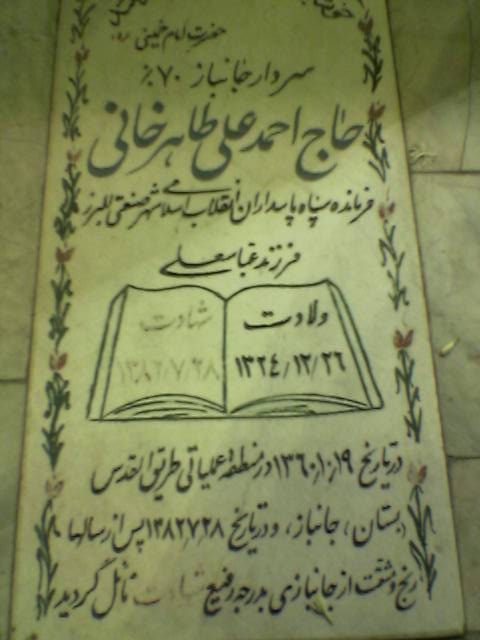 حضرت امام خمینی (ره)
سردار جانباز ۷۰٪
حاج احمد علی طاهرخانی
فرمانده سپاه پاسداران انقلاب اسلامی شهر صنعتی البرز
فرزند عباسعلی
ولادت
۱۳۲٤/۱۲/۲۶
شهادت
۱۳۸۲/۷/۲۸
در تاریخ ۱۳۶۰/۱۰/۱۹ در منطقه عملیاتی طریق القدس
(بستان)، جانباز، و در تاریخ ۱۳۸۲/۷/۲۸ پس از سالها
رنج و مشقت از جانبازی بدرجه رفیع شهادت نائل گردید